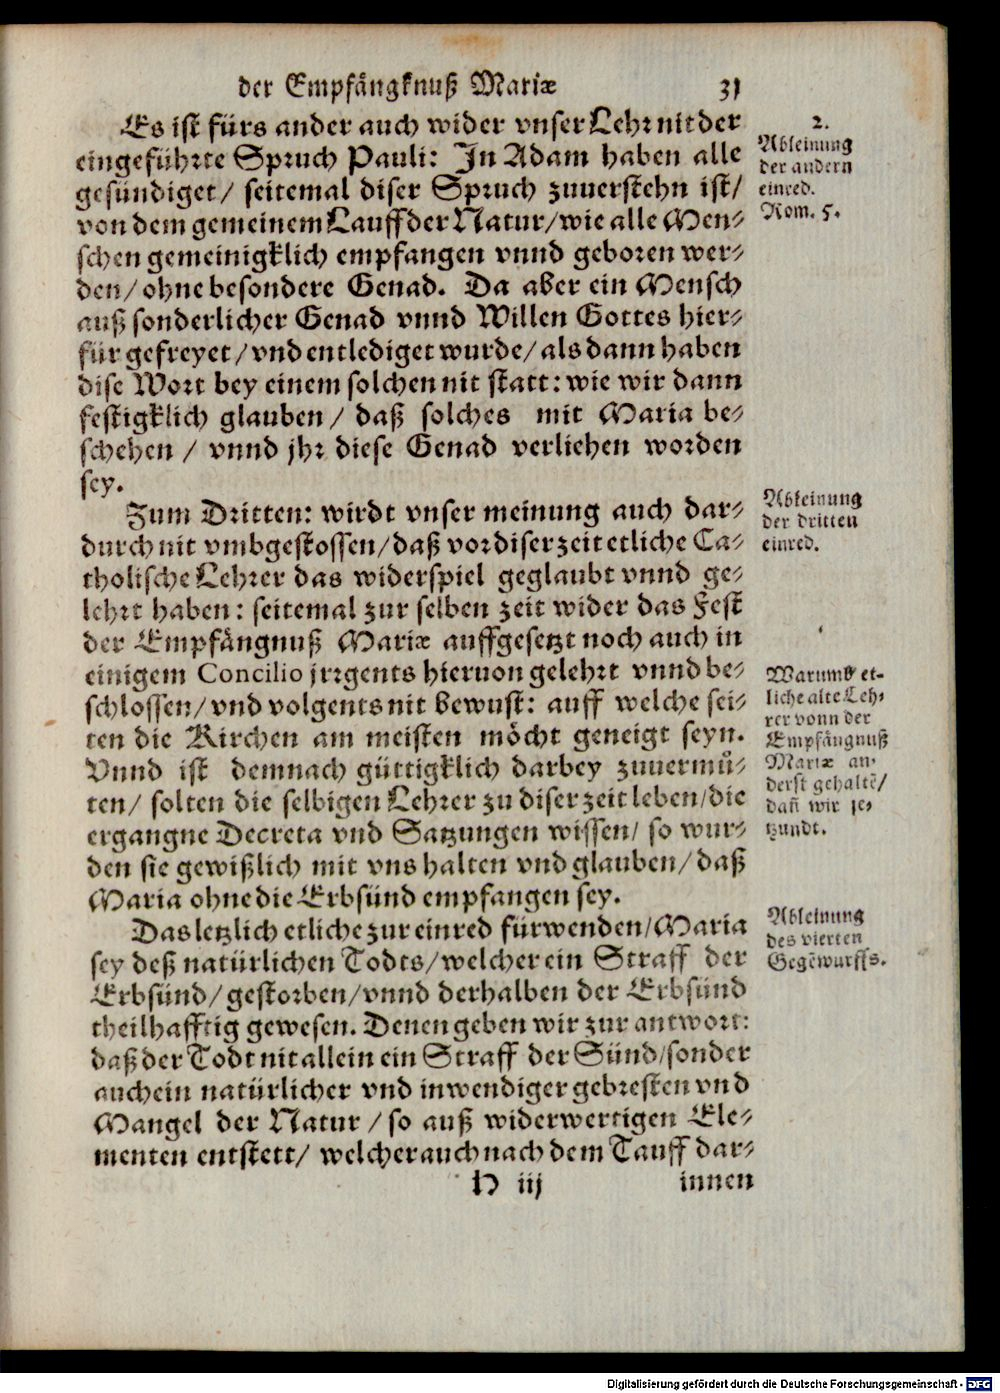 der Empfängknuß Mariæ 31
Es ist fürs ander auch wider vnser Lehr nit der
eingeführte Spruch Pauli: In Adam haben alle
gesündiget/ seitemal diser Spruch zuuerstehn ist/
von dem gemeinem Lauff der Natur/ wie alle Men-
schen gemeinigklich empfangen vnnd geboren wer-
den/ ohne besondere Genad. Da aber ein Mensch
auß sonderlicher Genad vnnd Willen Gottes hier-
für gefreyet/ vnd entlediget wurde/ als dann haben
dise Wort bey einem solchen nit statt: wie wir dann
festigklich glauben/ daß solches mit Maria be-
schehen/ vnnd jhr diese Genad verliehen worden
sey.
2.
Ableinung
der andern
einred.
Rom. 5.
Zum Dritten: wirdt vnser meinung auch dar-
durch nit vmbgestossen/ daß vor diser zeit etliche Ca-
tholische Lehrer das widerspiel geglaubt vnnd ge-
lehrt haben: seitemal zur selben zeit wider das Fest
der Empfängnuß Mariæ auffgesetzt noch auch in
einigem Concilio jrrgents hieruon gelehrt vnnd be-
schlossen/ vnd volgents nit bewust: auff welche sei-
ten die Kirchen am meisten möcht geneigt seyn.
Vnnd ist demnach güttigklich darbey zuuermů-
ten/ solten die selbigen Lehrer zu diser zeit leben/ die
ergangne Decreta vnd Satzungen wissen/ so wur-
den sie gewißlich mit vns halten vnd glauben/ daß
Maria ohne die Erbsünd empfangen sey.
Ableinung
der dritten
einred.
Warumb et-
liche alte Leh-
rer vonn der
Empfängnuß
Mariæ an-
derst gehaltē/
dañ wir je-
tzundt.
Das letzlich etliche zur einred fürwenden/ Maria
sey deß natürlichen Todts/ welcher ein Straff der
Erbsünd/ gestorben/ vnnd derhalben der Erbsünd
theilhafftig gewesen. Denen geben wir zur antwort:
daß der Todt nit allein ein Straff der Sünd/ sonder
auch ein natürlicher vnd inwendiger gebresten vnd
Mangel der Natur/ so auß widerwertigen Ele-
menten entstett/ welcher auch nach dem Tauff dar-
Ableinung
des vierten
Gegēwurffs.
H iij innen
Digitalisierung gefördert durch die Deutsche Forschungsgemeinschaft - DFG